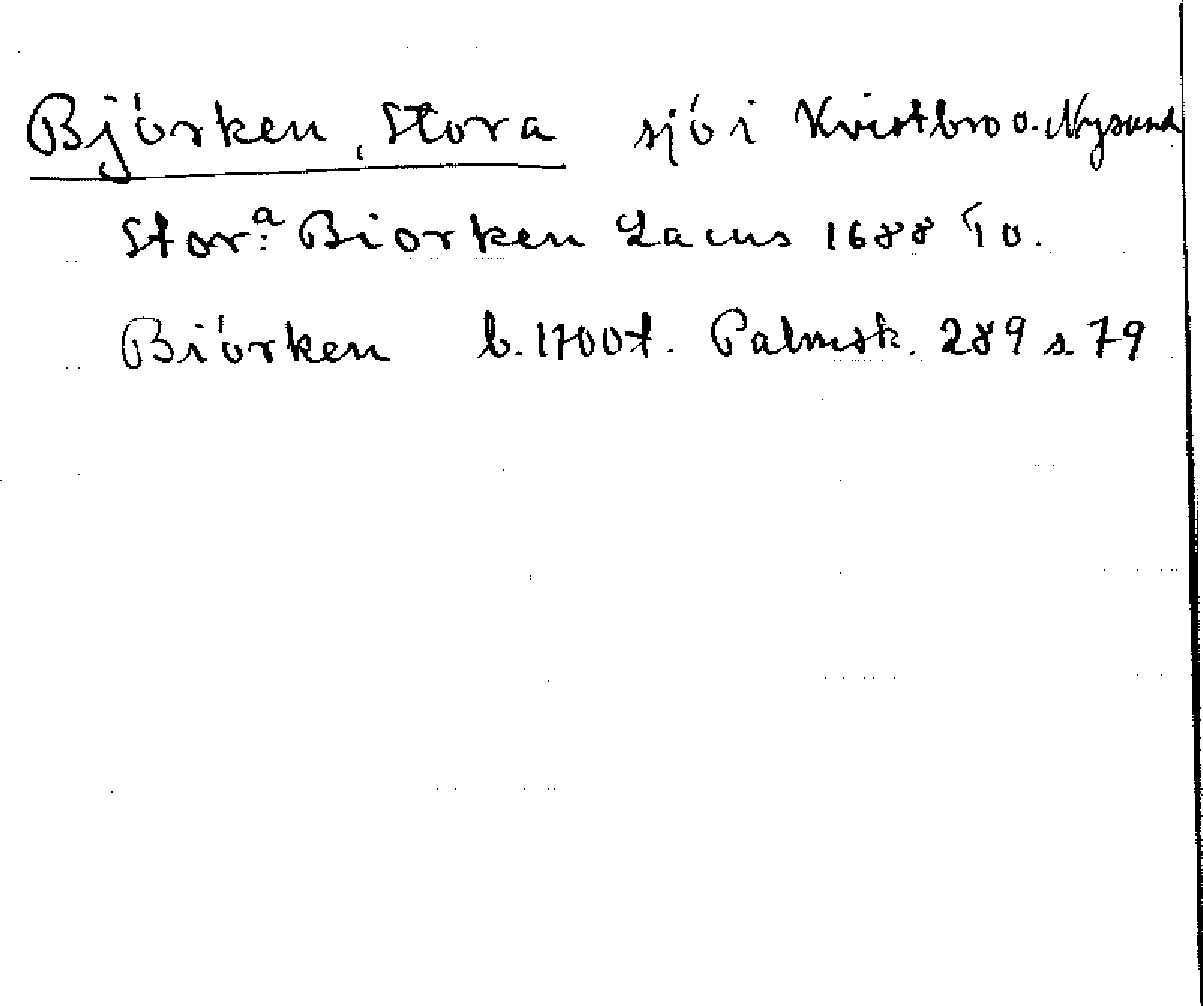 Björken, Stora sjö i Kvistbro o. Nysund
Stor:a Biorken Lacus 1688 10.
Biörken b. 1700t. Palmsk. 289 s. 79